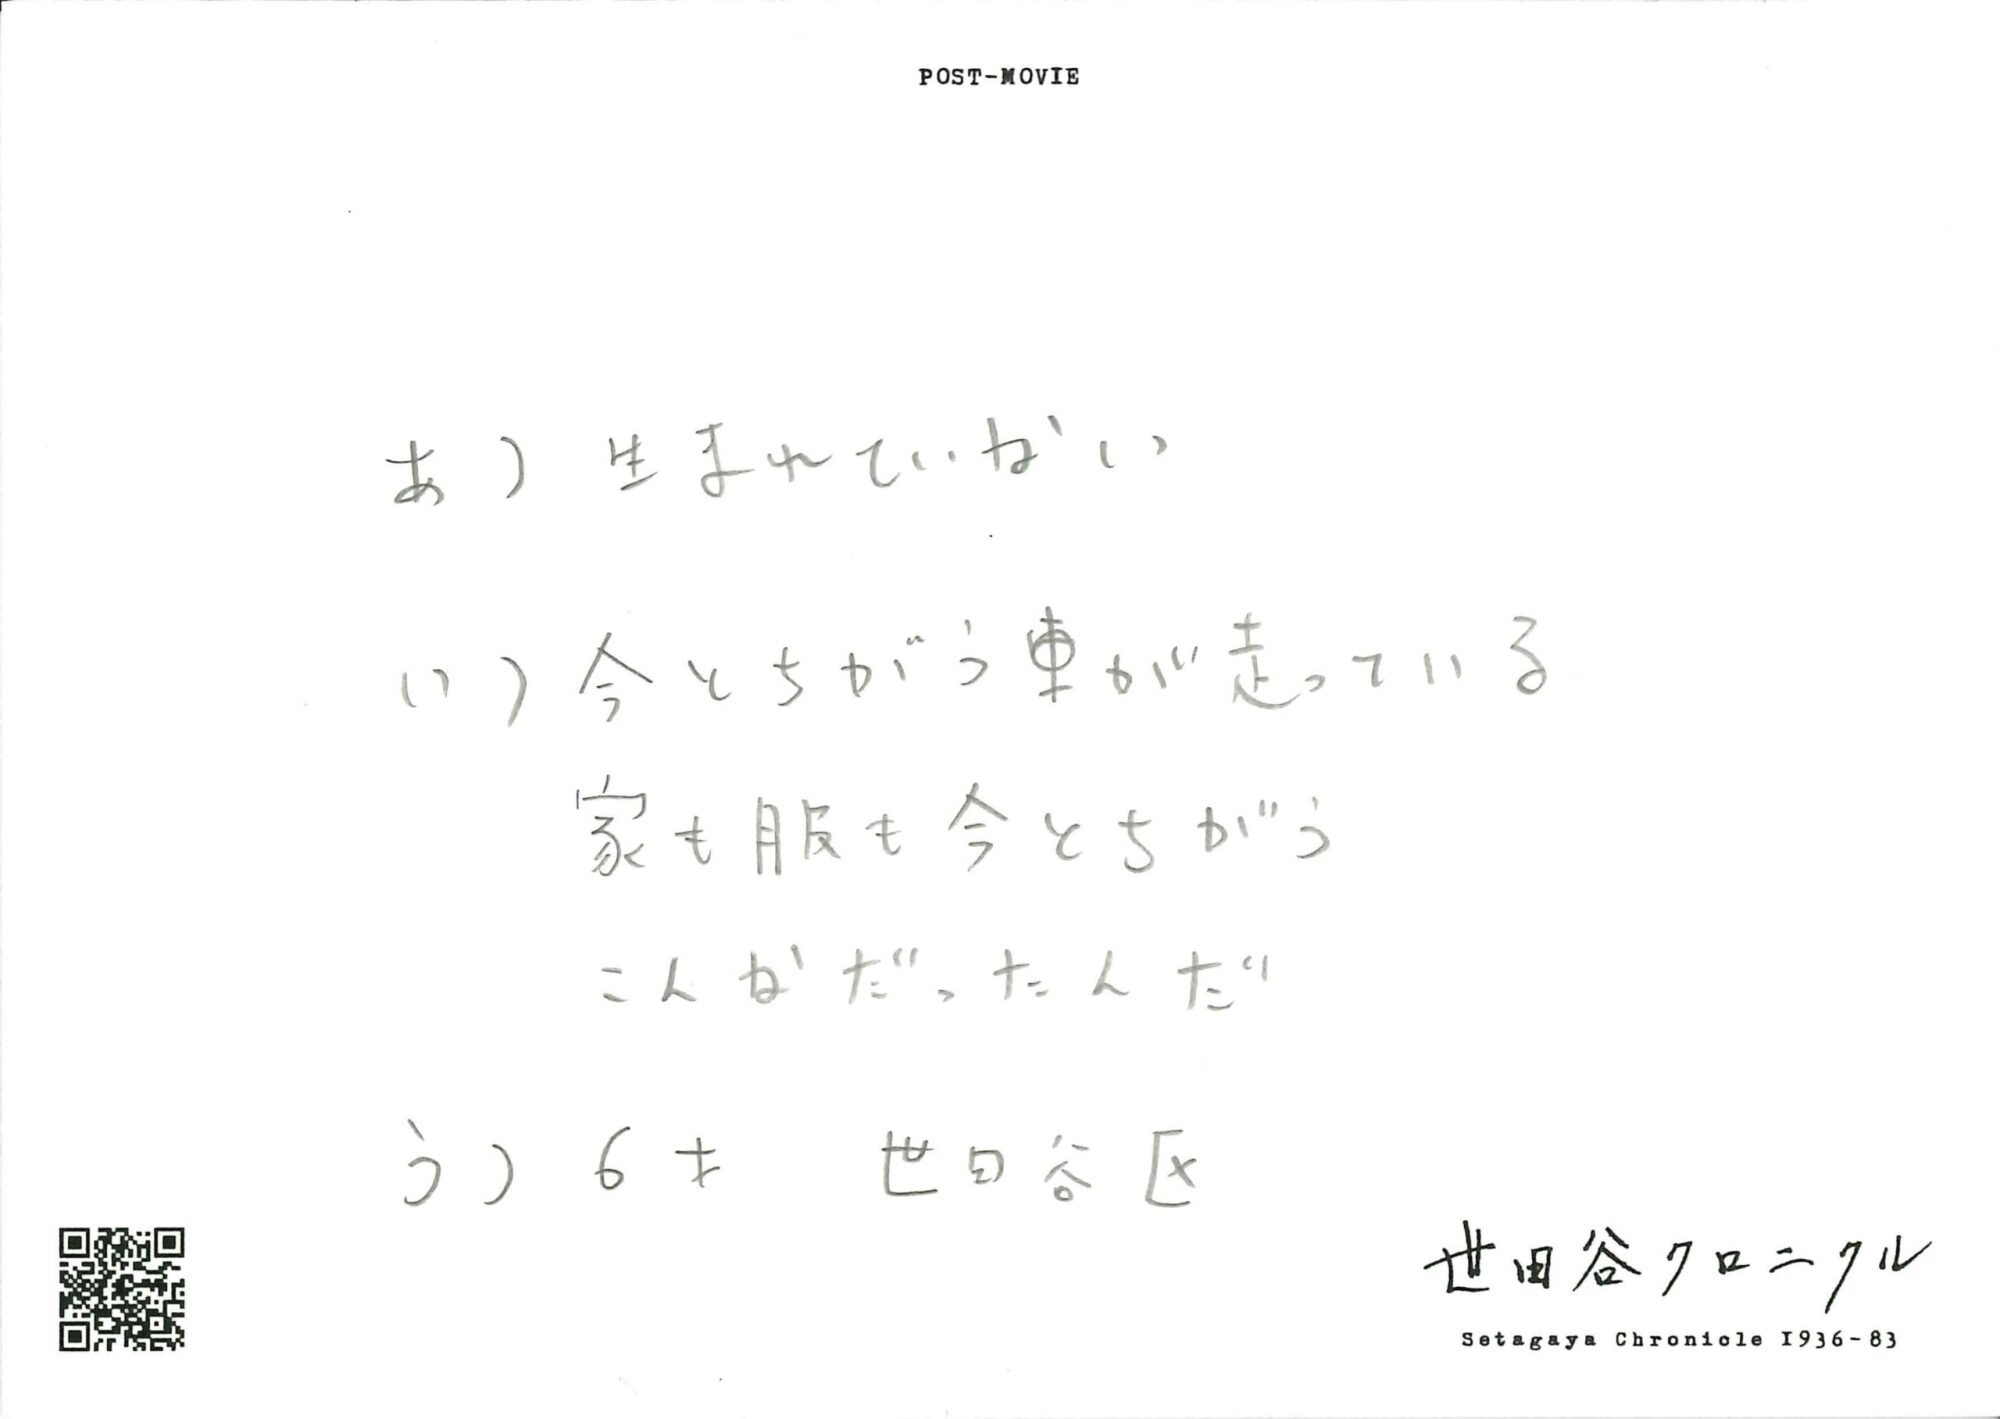 POST-MOVIE
あ) 生まれていない
い) 今とちがう車が走っている
家も服も今とちがう
こんなだったんだ
う) 6才 世田谷区
世田谷クロニクル
Setagaya Chronicle 1936-83